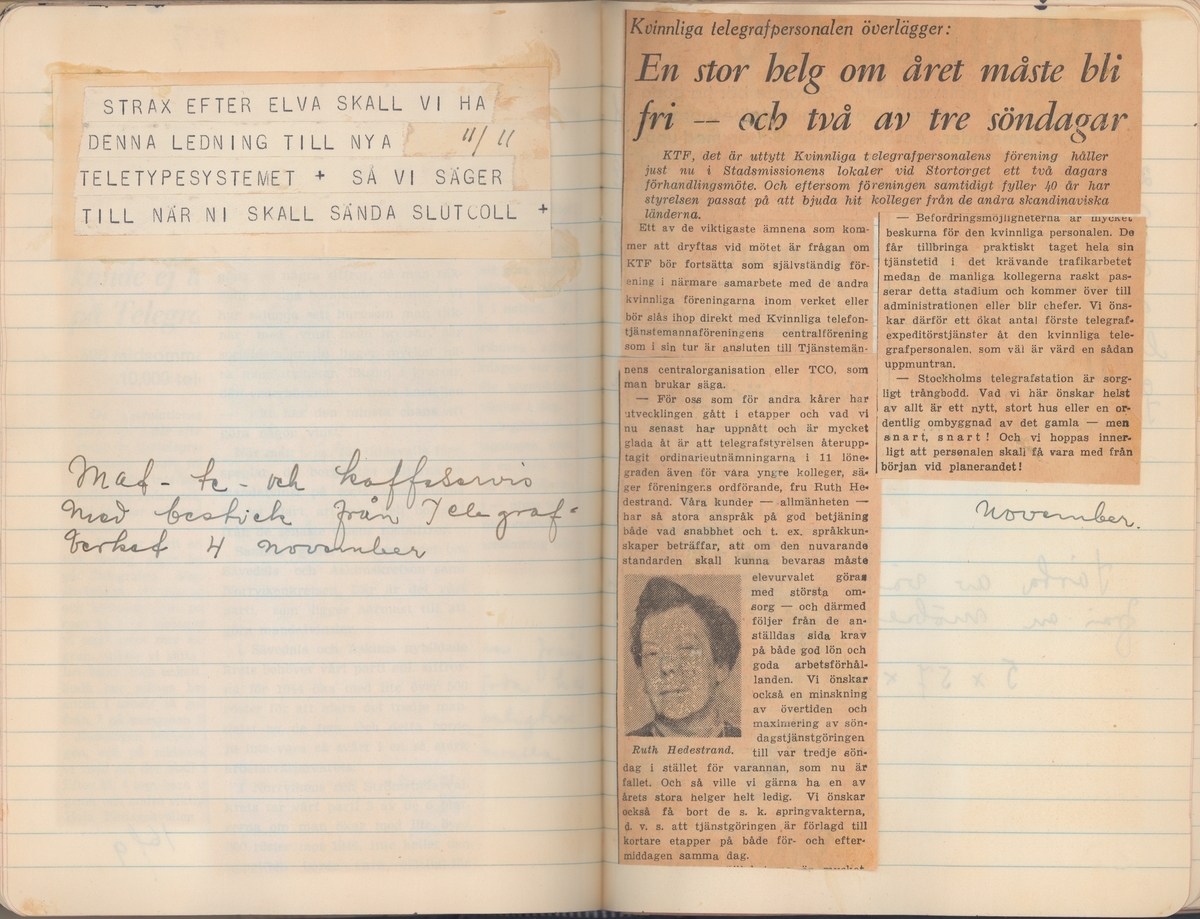 STRAX EFTER ELVA SKALL VI HA
DENNA LEDNING TILL NYA 4/11
TELETYPESYSTEMET + SÅ VI SÄGER
TILL NÄR NI SKALL SÄNDA SLUTCOLL +
Mat- te- och kaffeservis
med bestick från Telegraf-
verket 4 november
Kvinnliga telegrafpersonalen överlägger:
En stor helg om året måste bli
fri — och två av tre söndagar
KTF, det är uttytt Kvinnliga telegrafpersonalens förening håller
just nu i Stadsmissionens lokaler vid Stortorget ett två dagars
förhandlingsmöte. Och eftersom föreningen samtidigt fyller 40 år har
styrelsen passat på att bjuda hit kolleger från de andra skandinaviska
länderna.
Ett av de viktigaste ämnena som kom-
mer att dryftas vid mötet är frågan om
KTF bör fortsätta som självständig för-
ening i närmare samarbete med de andra
kvinnliga föreningarna inom verket eller
bör slås ihop direkt med Kvinnliga telefon-
tjänstemannaföreningens centralförening
som i sin tur är ansluten till Tjänstemän-
nens centralorganisation eller TCO, som
man brukar säga.
— För oss som för andra kårer har
utvecklingen gått i etapper och vad vi
nu senast har uppnått och är mycket
glada åt är att telegrafstyrelsen återupp-
tagit ordinarieutnämningarna i 11 löne-
graden även för våra yngre kolleger, sä-
ger föreningens ordförande, fru Ruth He-
destrand. Våra kunder — allmänheten —
har så stora anspråk på god betjäning
både vad snabbhet och t. ex. språkkun-
skaper beträffar, att om den nuvarande
standarden skall kunna bevaras måste
elevurvalet göras
med största om-
sorg — och därmed
följer från de an-
ställdas sida krav
på både god lön och
goda arbetsförhål-
landen. Vi önskar
också en minskning
av övertiden och
maximering av sön-
dagstjänstgöringen
Ruth Hedestrand.
till var tredje sön-
dag i stället för varannan, som nu är
fallet. Och så ville vi gärna ha en av
årets stora helger helt ledig. Vi önskar
också få bort de s. k. springvakterna,
d. v. s. att tjänstgöringen är förlagd till
kortare etapper på både för- och efter-
middagen samma dag.
— Befordringsmöjligheterna är mycket
beskurna för den kvinnliga personalen. De
får tillbringa praktiskt taget hela sin
tjänstetid i det krävande trafikarbetet
medan de manliga kollegerna raskt pas-
serar detta stadium och kommer över till
administrationen eller blir chefer. Vi öns-
kar därför ett ökat antal förste telegraf-
expeditörstjänster åt den kvinnliga tele-
grafpersonalen, som väl är värd en sådan
uppmuntran.
— Stockholms telegrafstation är sorg-
ligt trångbodd. Vad vi här önskar helst
av allt är ett nytt, stort hus eller en or-
dentlig ombyggnad av det gamla — men
snart, snart! Och vi hoppas inner-
ligt att personalen skall få vara med från
början vid planerandet!
November.